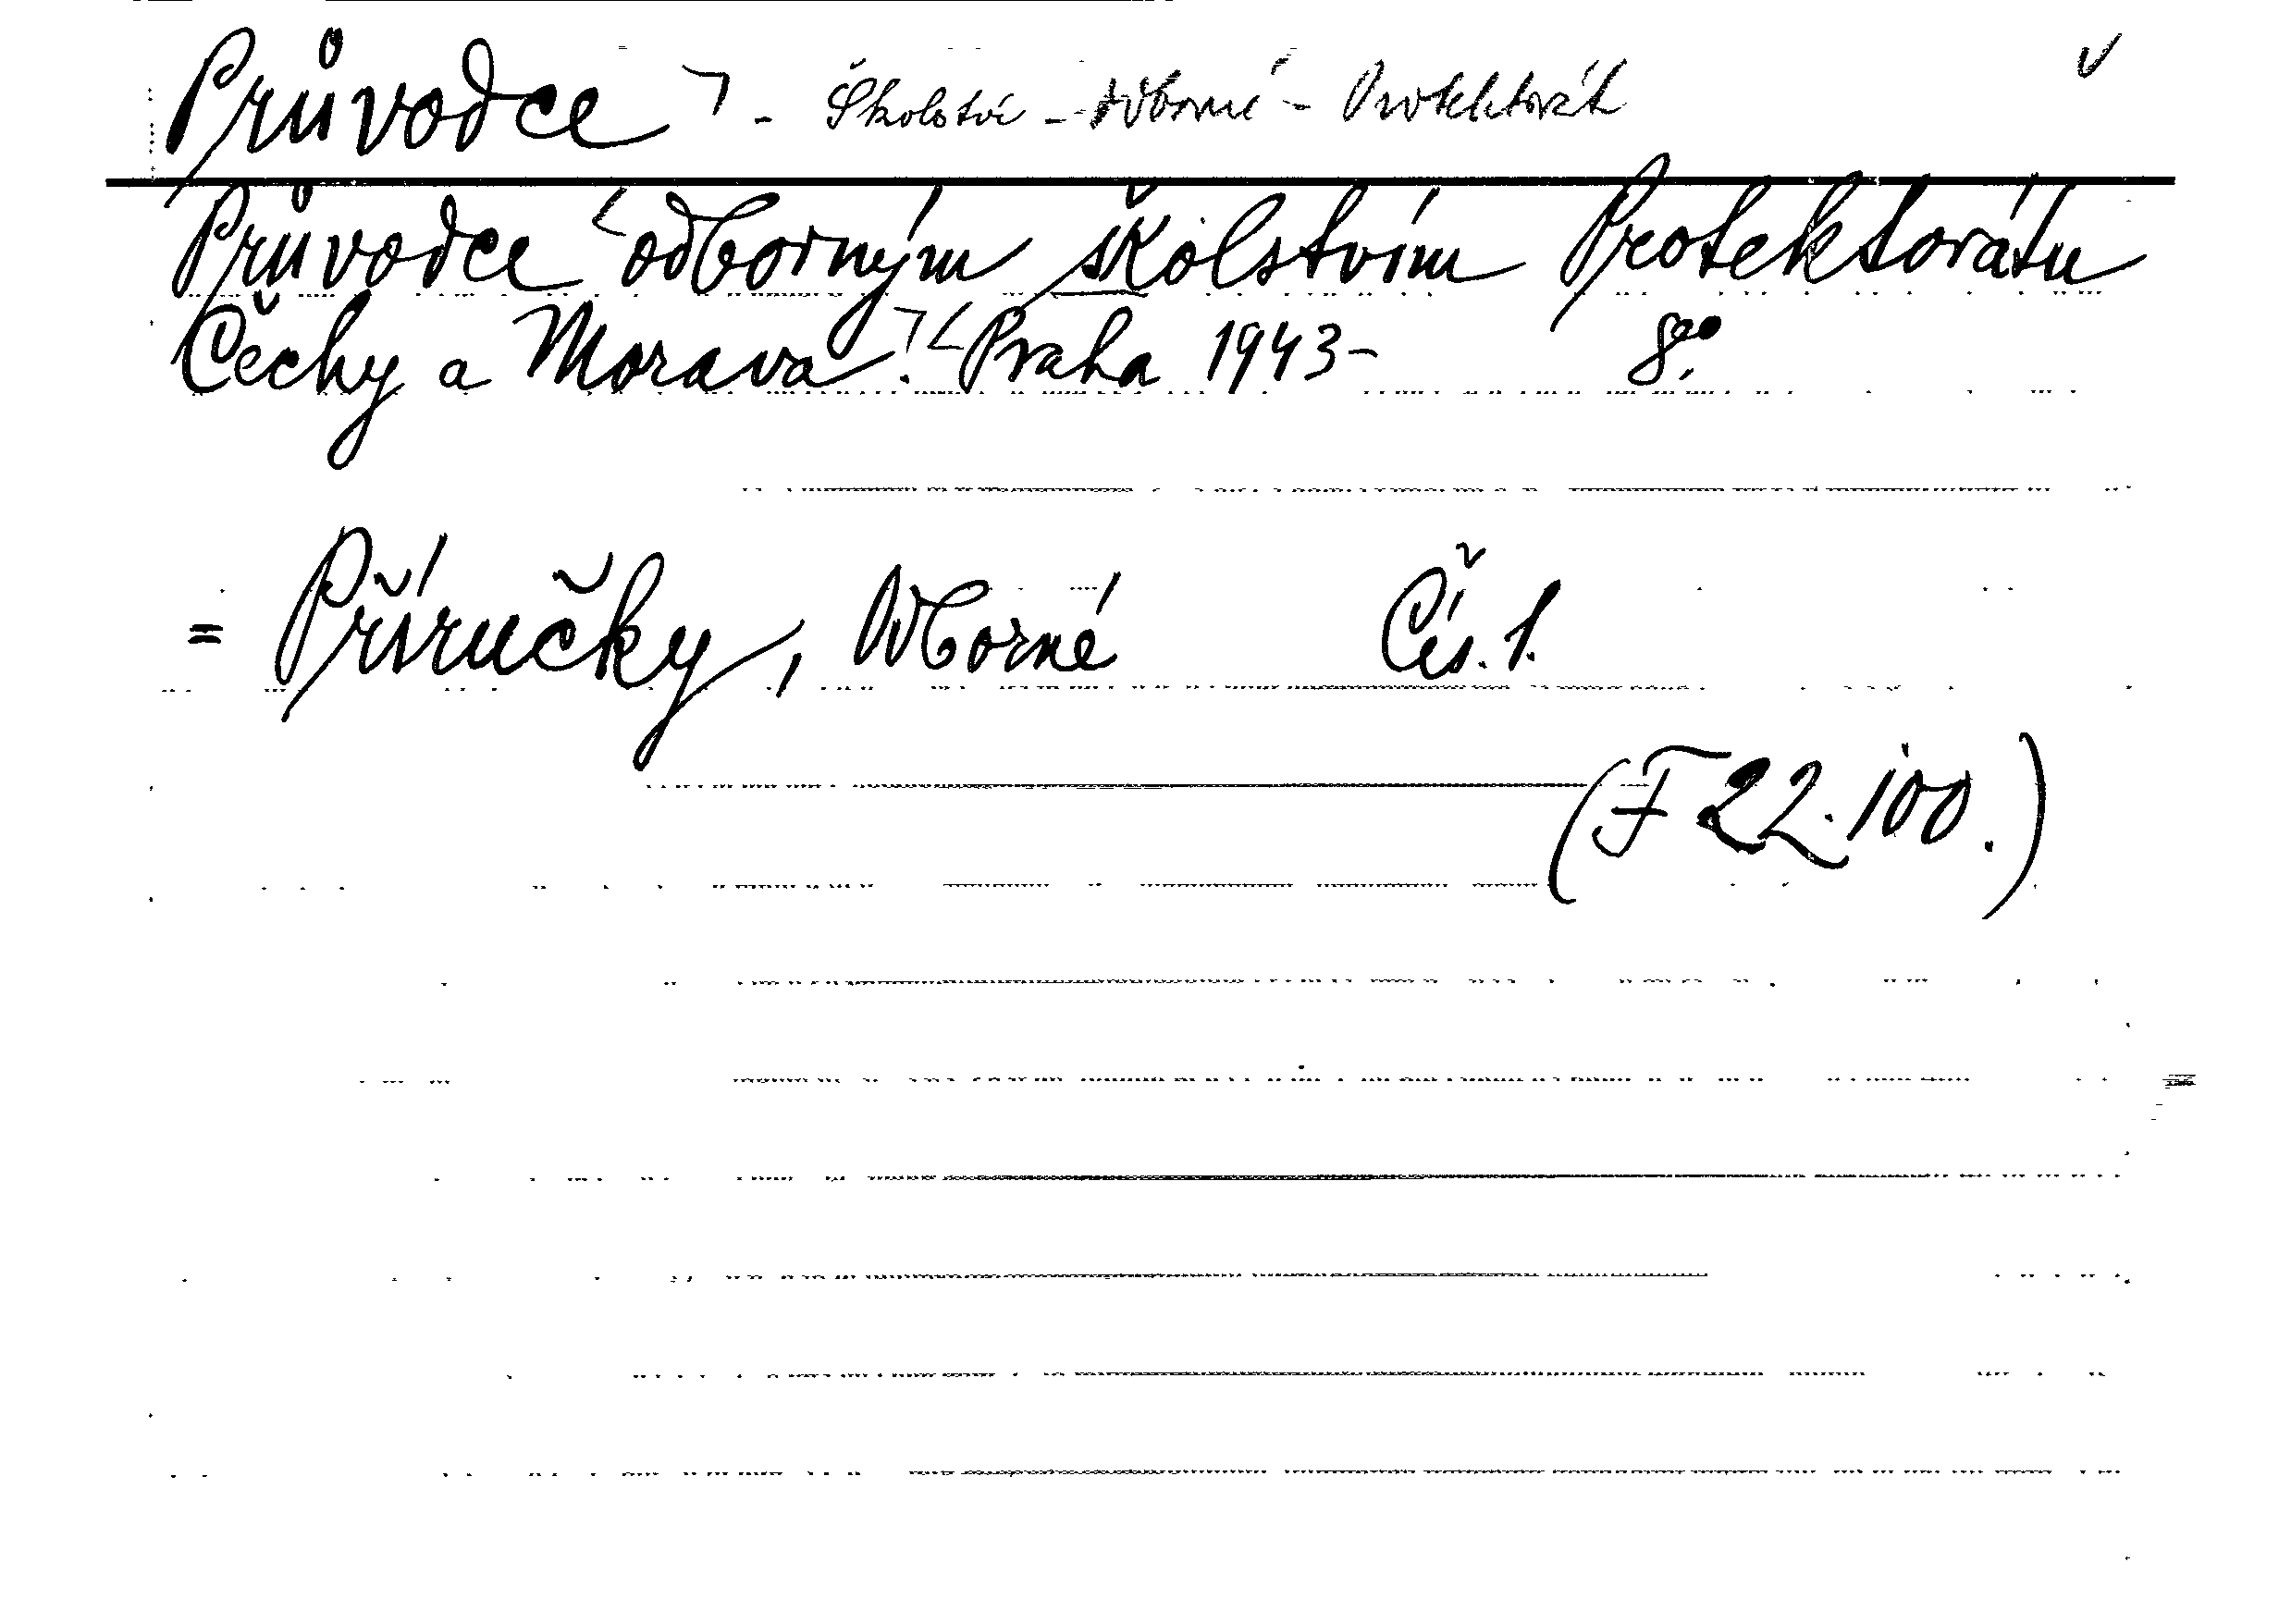 Průvodce ⌝ - Školství - odborné - Protektorát
Průvodce odborným školstvím Protektorátu
Čechy a Morava. Praha 1943- 8°.
= Příručky, Odborné Čís. 1.
(F 22.100.)